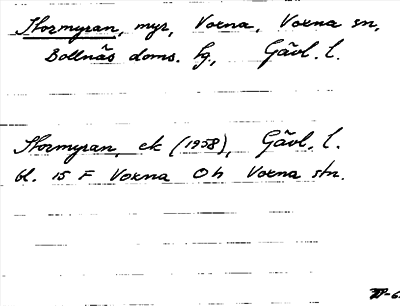 Stormyran, myr, Voxna, Voxna sn,
Bollnäs doms. fg., Gävl. l.
Stormyran, ek (1958), Gävl. l.
bl. 15 F Voxna Oh Voxna stn.